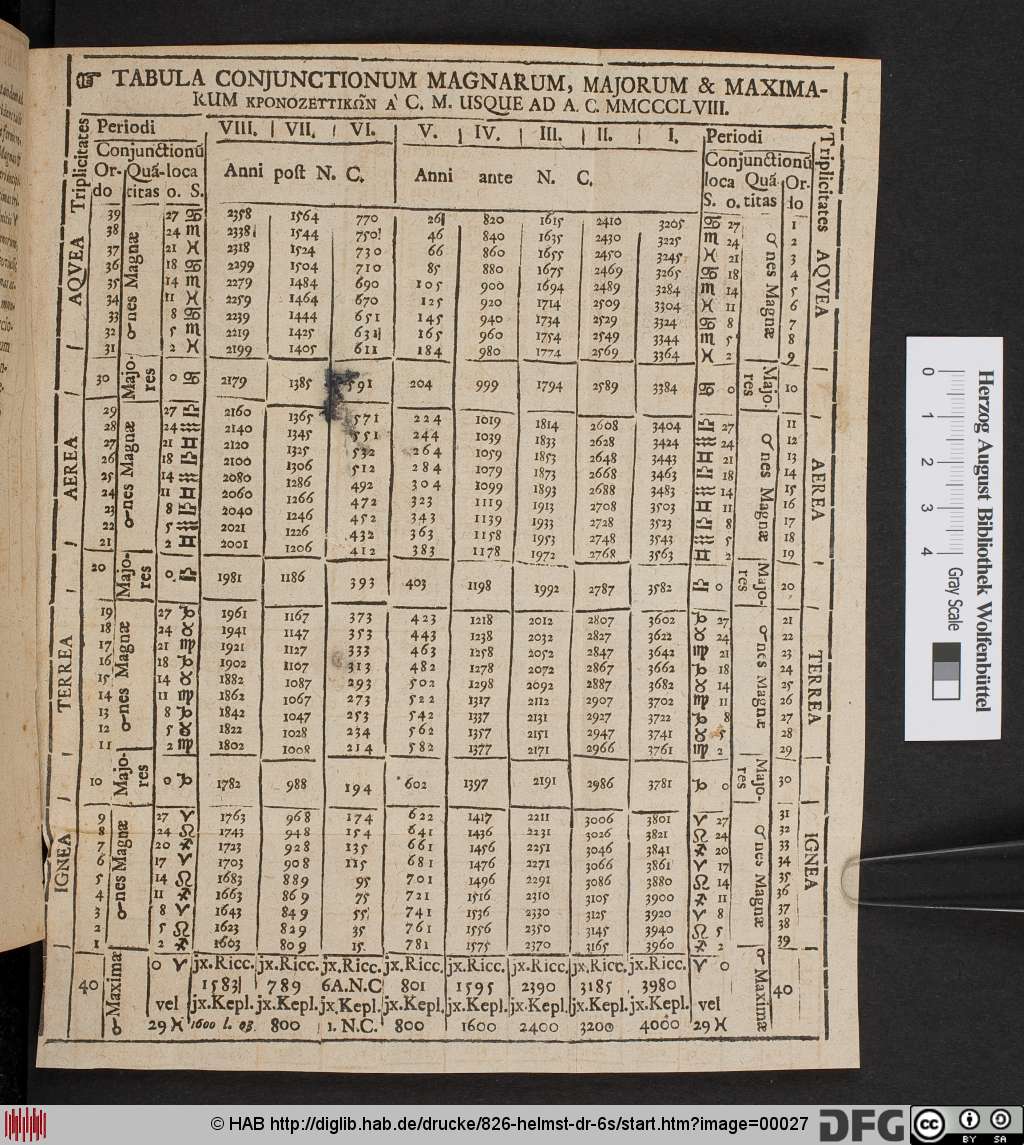 ☞ TABULA CONJUNCTIONUM MAGNARUM, MAJORUM & MAXIMA-
RUM ΚΡΟΝΟΖΕΤΤΙΚΩΝ A' C. M. USQUE AD A. C. MMCCCLVIII.
Triplicitates Periodi VIII. VII. VI. V. IV. III. II. I. Periodi Triplicitates
Conjunctionū Conjunctionū
Or- Quā- loca Anni post N. C. Anni ante N. C. loca Quā- Or-
do titas o. S. S. o. titas do
AQVEA ☌nes Magnæ ☌nes Magnæ AQVEA
39 27 ♋ 2358 1564 770 26 820 1615 2410 3205 ♋ 27 1
38 24 ♏ 2338 1544 750 46 840 1635 2430 3225 ♏ 24 2
37 21 ♓ 2318 1524 730 66 860 1655 2450 3245 ♓ 21 3
36 18 ♋ 2299 1504 710 85 880 1675 2469 3265 ♋ 18 4
35 14 ♏ 2279 1484 690 105 900 1694 2489 3284 ♏ 14 5
34 11 ♓ 2259 1464 670 125 920 1714 2509 3304 ♓ 11 6
33 8 ♋ 2239 1444 651 145 940 1734 2529 3324 ♋ 8 7
32 5 ♏ 2219 1425 631 165 960 1754 2549 3344 ♏ 5 8
31 2 ♓ 2199 1405 611 184 980 1774 2569 3364 ♓ 2 9
30 Majo-res 0 ♋ 2179 1385 591 204 999 1794 2589 3384 ♋ 0 Majo-res 10
AEREA ☌nes Magnæ ☌nes Magnæ AEREA
29 27 ♎ 2160 1365 571 224 1019 1814 2608 3404 ♎ 27 11
28 24 ♒ 2140 1345 551 244 1039 1833 2628 3424 ♒ 24 12
27 21 ♊ 2120 1325 532 264 1059 1853 2648 3443 ♊ 21 13
26 18 ♎ 2100 1306 512 284 1079 1873 2668 3463 ♎ 18 14
25 14 ♒ 2080 1286 492 304 1099 1893 2688 3483 ♒ 14 15
24 11 ♊ 2060 1266 472 323 1119 1913 2708 3503 ♊ 11 16
23 8 ♎ 2040 1246 452 343 1139 1933 2728 3523 ♎ 8 17
22 5 ♒ 2021 1226 432 363 1158 1953 2748 3543 ♒ 5 18
21 2 ♊ 2001 1206 412 383 1178 1972 2768 3563 ♊ 2 19
20 Majo-res 0 ♎ 1981 1186 393 403 1198 1992 2787 3582 ♎ 0 Majo-res 20
TERREA ☌nes Magnæ ☌nes Magnæ TERREA
19 27 ♑ 1961 1167 373 423 1218 2012 2807 3602 ♑ 27 21
18 24 ♉ 1941 1147 353 443 1238 2032 2827 3622 ♉ 24 22
17 21 ♍ 1921 1127 333 463 1258 2052 2847 3642 ♍ 21 23
16 18 ♑ 1902 1107 313 482 1278 2072 2867 3662 ♑ 18 24
15 14 ♉ 1882 1087 293 502 1298 2092 2887 3682 ♉ 14 25
14 11 ♍ 1862 1067 273 522 1317 2112 2907 3702 ♍ 11 26
13 8 ♑ 1842 1047 253 542 1337 2131 2927 3722 ♑ 8 27
12 5 ♉ 1822 1028 234 562 1357 2151 2947 3741 ♉ 5 28
11 2 ♍ 1802 1008 214 582 1377 2171 2966 3761 ♍ 2 29
10 Majo-res 0 ♑ 1782 988 194 602 1397 2191 2986 3781 ♑ 0 Majo-res 30
IGNEA ☌nes Magnæ ☌nes Magnæ IGNEA
9 27 ♈ 1763 968 174 622 1417 2211 3006 3801 ♈ 27 31
8 24 ♌ 1743 948 154 641 1436 2231 3026 3821 ♌ 24 32
7 20 ♐ 1723 928 135 661 1456 2251 3046 3841 ♐ 20 33
6 17 ♈ 1703 908 115 681 1476 2271 3066 3861 ♈ 17 34
5 14 ♌ 1683 889 95 701 1496 2291 3086 3880 ♌ 14 35
4 11 ♐ 1663 869 75 721 1516 2310 3105 3900 ♐ 11 36
3 8 ♈ 1643 849 55 741 1536 2330 3125 3920 ♈ 8 37
2 5 ♌ 1623 829 35 761 1556 2350 3145 3940 ♌ 5 38
1 2 ♐ 1603 809 15 781 1575 2370 3165 3960 ♐ 2 39
40 ☌Maximæ ☌Maximæ 40
0 ♈ jx.Ricc. jx.Ricc. jx.Ricc. jx.Ricc. jx.Ricc. jx.Ricc. jx.Ricc. jx.Ricc. ♈ 0
1583 789 6A.N.C 801 1595 2390 3185 3980
vel jx.Kepl. jx.Kepl. jx.Kepl. jx.Kepl. jx.Kepl. jx.Kepl. jx.Kepl. jx.Kepl. vel
29 ♓ 1600 l. 03 800 1. N.C. 800 1600 2400 3200 4000 29 ♓
0 1 2 3 4
Gray Scale
Herzog August Bibliothek Wolfenbüttel
© HAB http://diglib.hab.de/drucke/826-helmst-dr-6s/start.htm?image=00027
DFG
cc BY SA